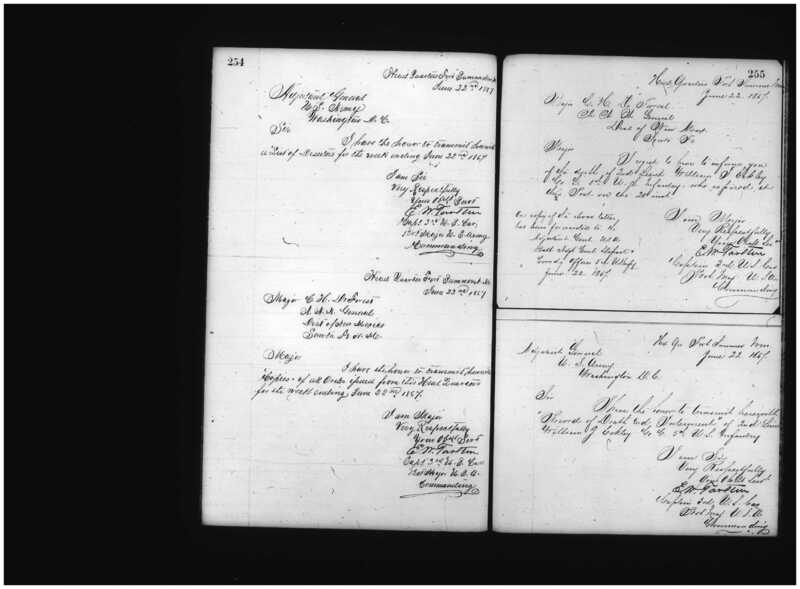 254
Head Quarters Fort Sumner N.M.
June 22nd 1867
Adjutant General
U.S. Army
Washington D.C.
Sir
I have the honor to transmit herewith
a List of Deserters for the week ending June 22nd 1867
I am Sir
Very Respectfully
Your Obdt Servt
E. W. Tarlton
Capt 3rd U.S. Cav.
Bvt Major U.S. Army
Commanding
Head Quarters Fort Sumner N.M.
June 22nd 1867
Major C. H. De Forrest
A.A.A. General
Dist of New Mexico
Santa Fe N.M.
Major
I have the honor to transmit herewith
Copies of all Orders issued from this Head Quarters
for the week ending June 22nd 1867.
I am Major
Very Respectfully
Your Obdt Servt
E. W. Tarlton
Capt 3rd U.S. Cav
Bvt Major U.S.A.
Commanding
255
Head Quarters Fort Sumner N.M.
June 22 1867.
Major C. H. De Forrest
A. A. A. General
Dist of New Mex.
Santa Fe
Major
I regret to have to inform you
of the death of 2nd Lieut William J.
Co. 5th U.S. Infantry who expired at
this Post on the inst.
One copy of the above letter
has been forwarded to the
Adjutant Genl U.S.A.
June 22 1867.
I am Major
Very Respectfully
Your Obdt Sevt
E. W. Tarlton
Captain 3rd U.S. Cav
Bvt Maj U.S.A.
Commanding
Hd Qr Fort Sumner N.M.
June 22 1867.
Adjutant General
U.S. Army
Washington D.C.
Sir
I have the honor to transmit herewith
"Record of Death and Interment" of 2nd Lieut
William J. Co. 5th U.S. Infantry
I am Sir
Very Respectfully
Your Obdt Servt
E. W. Tarlton
Captain 3rd U.S. Cav
Bvt Maj U.S.A.
Commanding